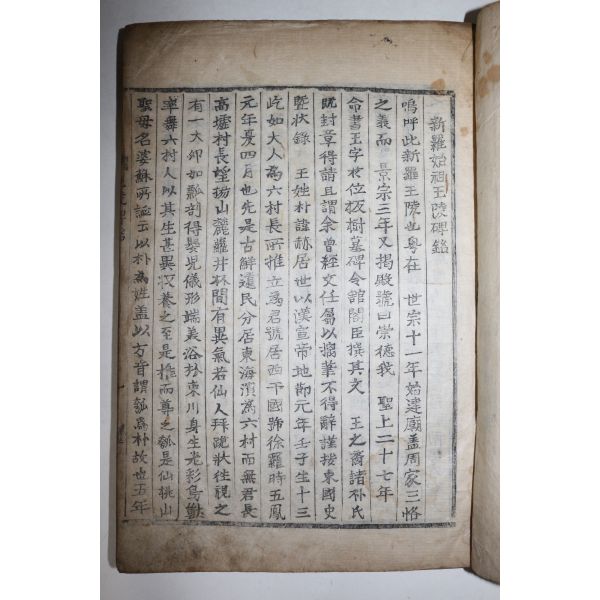 新羅始祖王陵碑銘
嗚呼此新羅王陵也粤在 世宗十一年始建廟盖周家三恪
之義而 景宗三年又揭殿號曰崇德我 聖上二十七年
命書王字於位板樹墓碑令館閣臣撰其文 王之裔諸朴氏
旣封章得請且謂余曾經文任屬以搦筆不得辭謹按東國史
曁狀錄 王姓朴諱赫居世以漢宣帝地節元年壬子生十三
屹如大人爲六村長所推立爲君號居西干國號徐羅時五鳳
元年夏四月也先是古鮮遺民分居東海濱爲六村而無君長
高墟村長望楊山麓蘿井林間有異氣若仙人拜跪狀徃視之
有一大卵如瓠剖得嬰兒儀形端美浴於東川身生光彩鳥獸
率舞六村人以其生甚異收養之至是推而尊之瓠是仙桃山
聖母名婆蘇所誕云以朴爲姓盖以方言謂瓠爲朴故也五年